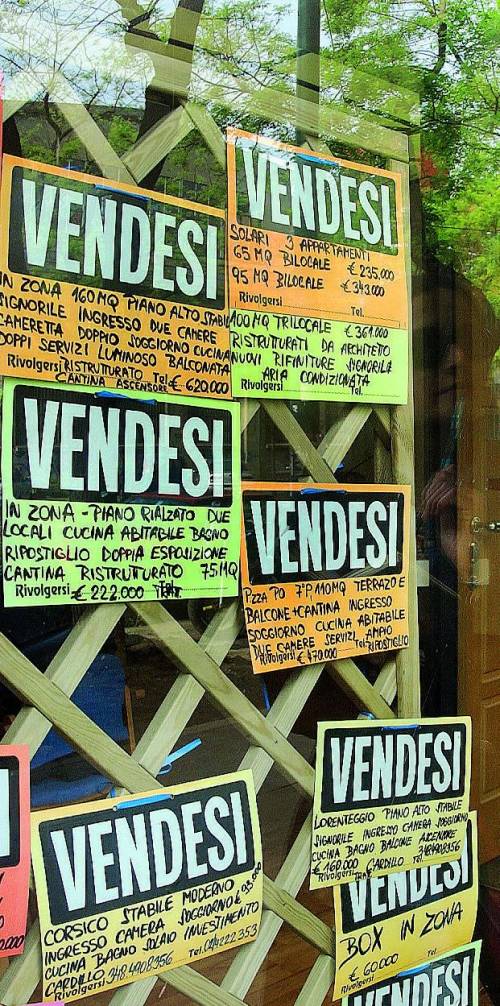 VENDESI
IN ZONA 160 MQ PIANO ALTO STABILE
SIGNORILE INGRESSO DUE CAMERE
CAMERETTA DOPPIO SOGGIORNO CUCINA
DOPPI SERVIZI LUMINOSO BALCONATA
Rivolgersi RISTRUTTURATO Tel.
CANTINA ASCENSORE € 620.000
VENDESI
SOLARI 3 APPARTAMENTI
65 MQ BILOCALE € 235.000
95 MQ BILOCALE € 343.000
Rivolgersi Tel.
100 MQ TRILOCALE € 361.000
RISTRUTTURATI DA ARCHITETTO
NUOVI RIFINITURE SIGNORILI
ARIA CONDIZIONATA
Rivolgersi Tel.
VENDESI
IN ZONA - PIANO RIALZATO DUE
LOCALI CUCINA ABITABILE BAGNO
RIPOSTIGLIO DOPPIA ESPOSIZIONE
CANTINA RISTRUTTURATO 75 MQ
Rivolgersi € 222.000
VENDESI
P.ZZA PO 7°P, 110 MQ TERRAZO E
BALCONE+CANTINA INGRESSO
SOGGIORNO CUCINA ABITABILE
DUE CAMERE SERVIZI, AMPIO
Rivolgersi € 470.000 Tel. RIPOSTIGLIO
VENDESI
LORENTEGGIO PIANO ALTO STABILE
SIGNORILE INGRESSO CAMERA SOGGIORNO
CUCINA BAGNO BALCONE ASCENSORE
€ 168.000 CARDILLO 3484908956
Rivolgersi Tel.
VENDESI
CORSICO STABILE MODERNO
INGRESSO CAMERA SOGGIORNO €
CUCINA BAGNO SOLAIO INVESTIMENTO
CARDILLO 348.4908956 Tel.
Rivolgersi
VENDESI
BOX IN ZONA
€ 60.000 Tel.
Rivolgersi
VENDESI